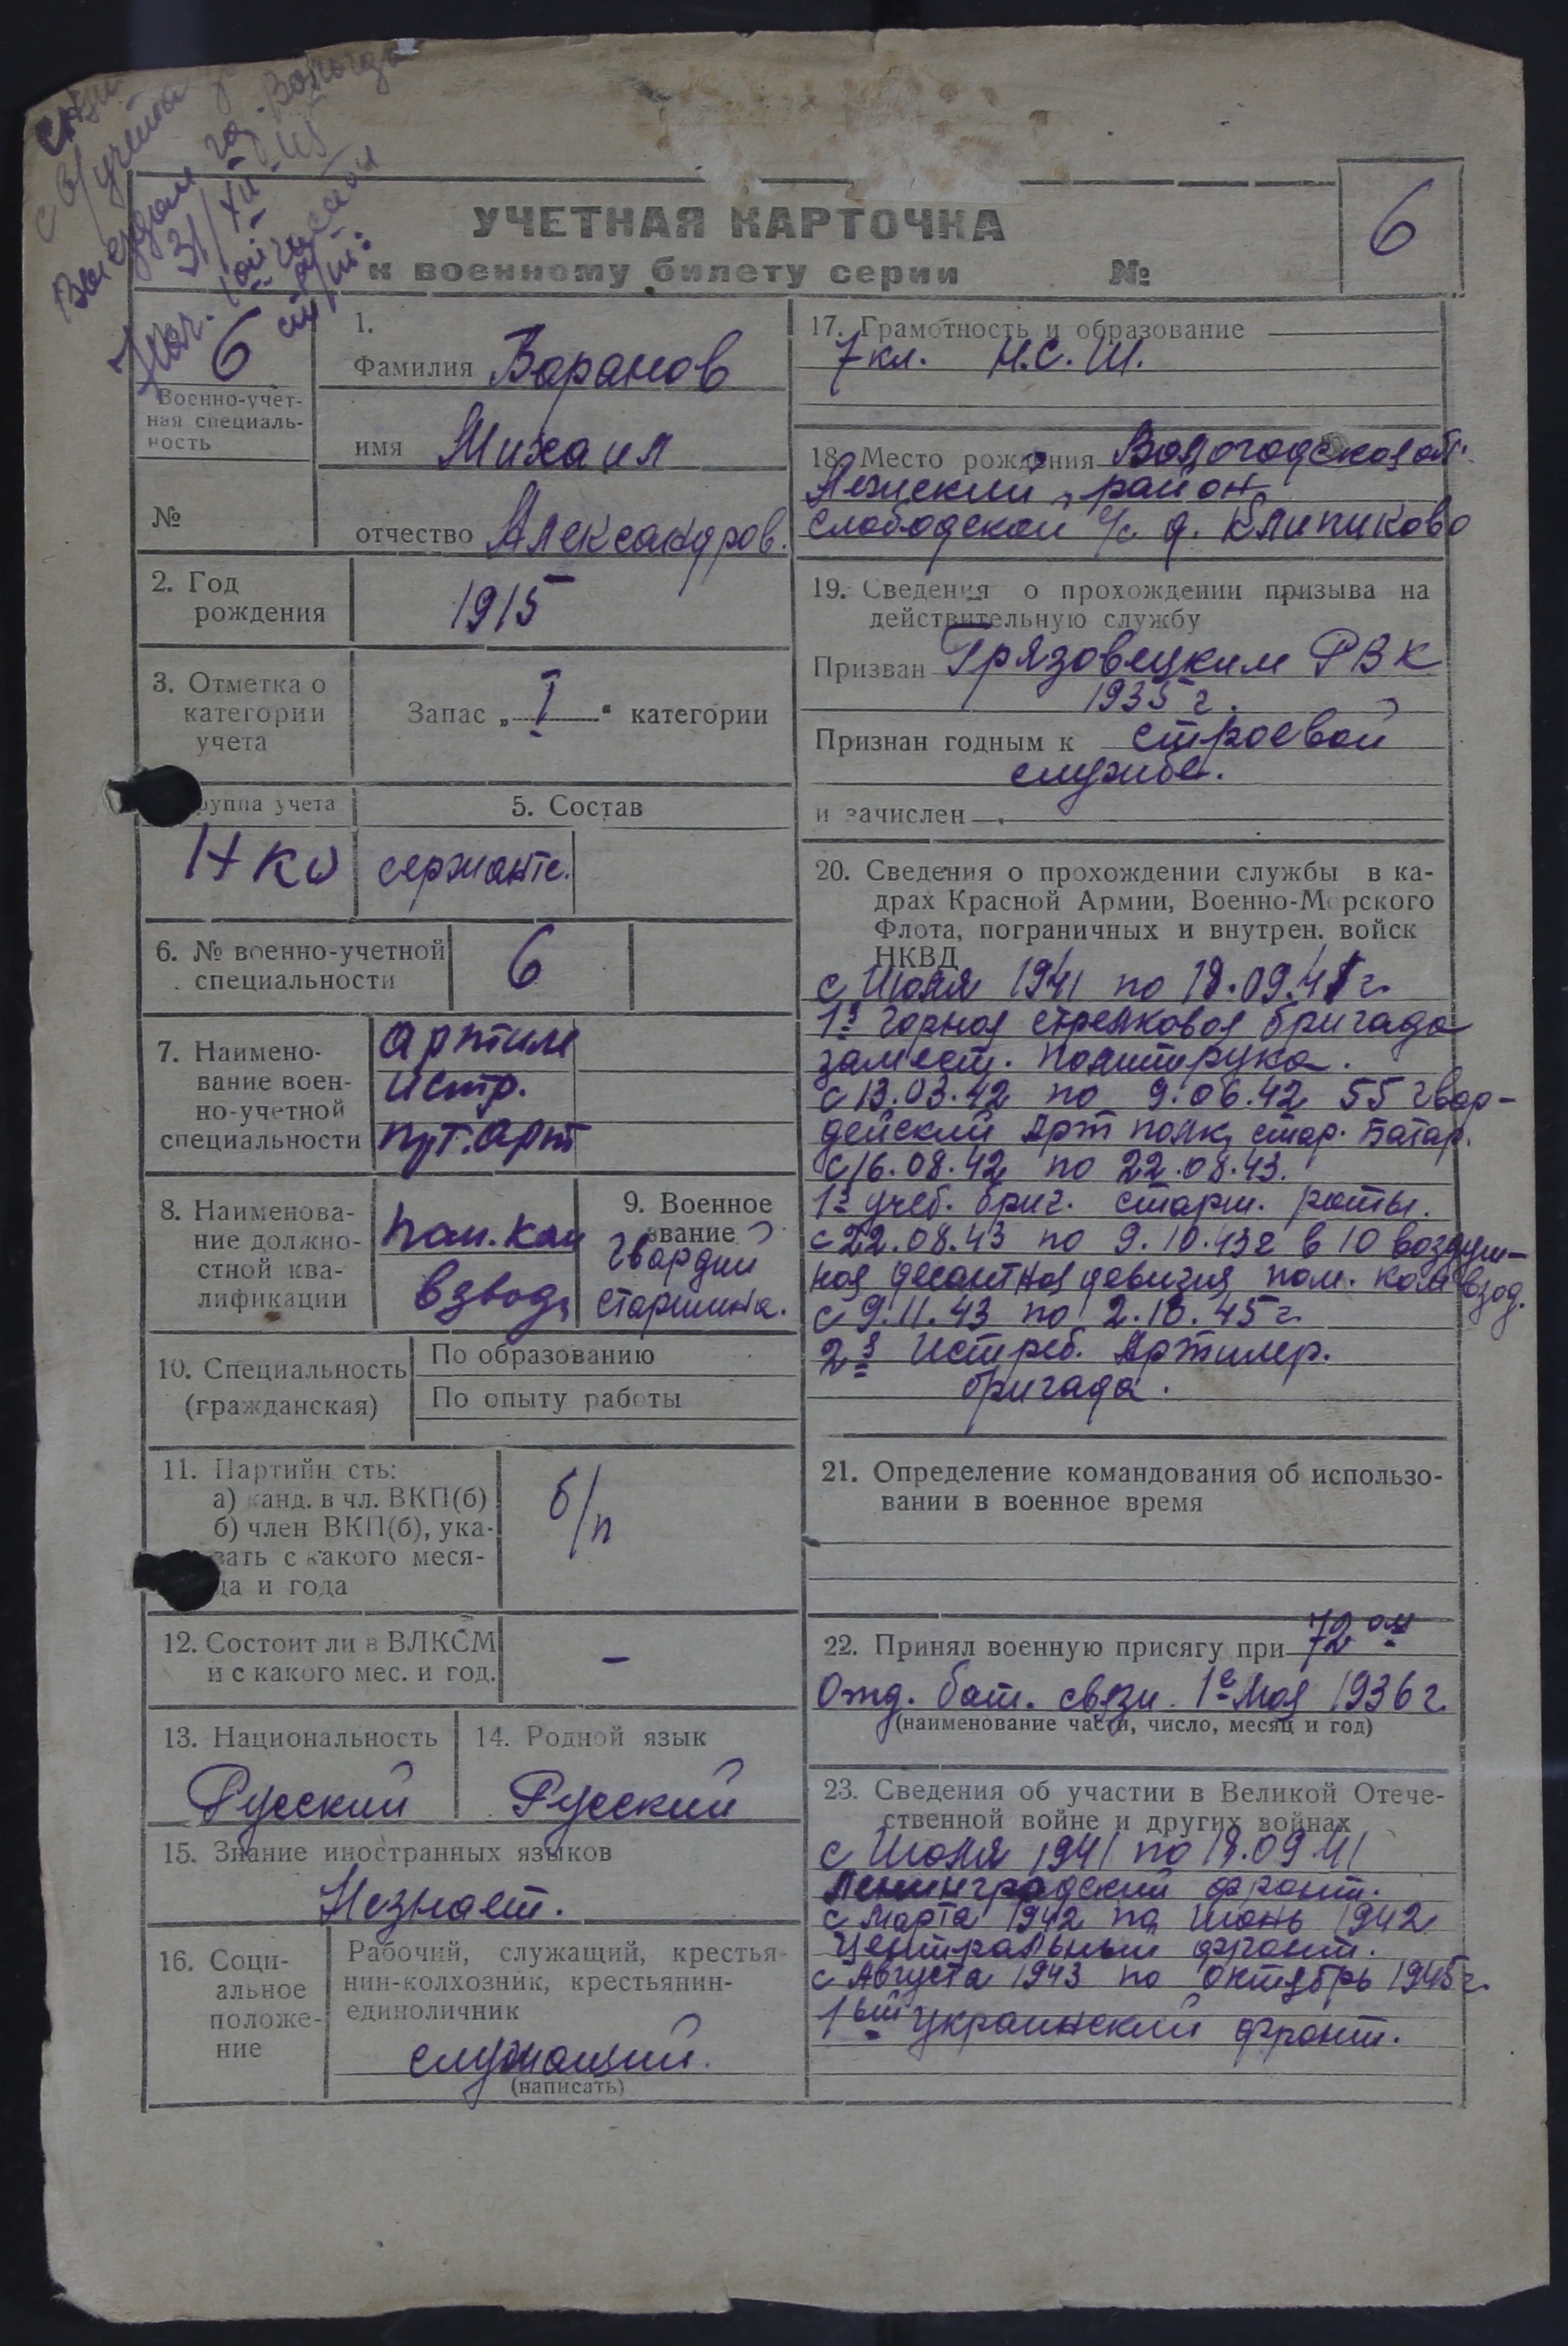 с в/учёта
Выездом гор. Вологда
31/XII-45
Нач. 1ой части
УЧЕТНАЯ КАРТОЧКА
к военному билету серии №
6
6
Военно-учет-
ная специаль-
ность
№
1.
Фамилия Варанов
имя Михаил
отчество Александров.
2. Год
рождения
1915
3. Отметка о
категории
учета
Запас „ I “ категории
руппа учета
НКО
5. Состав
сержантс.
6. № военно-учетной
специальности
6
7. Наимено-
вание воен-
но-учетной
специальности
Артилл
истр.
прт. арт
8. Наименова-
ние должно-
стной ква-
лификации
пом. ком
взвода
9. Военное
звание
Гвардии
старшина.
10. Специальность
(гражданская)
По образованию
По опыту работы
11. Партийн сть:
а) канд. в чл. ВКП(б)
б) член ВКП(б), ука-
зать с какого меся-
ца и года
б/п
12. Состоит ли в ВЛКСМ
и с какого мес. и год.
–
13. Национальность
Русский
14. Родной язык
Русский
15. Знание иностранных языков
Незнает.
16. Соци-
альное
положе-
ние
Рабочий, служащий, крестья-
нин-колхозник, крестьянин-
единоличник
служащий.
(написать)
17. Грамотность и образование
7 кл. Н.С.Ш.
18. Место рождения Вологодская обл.
Лежский район
Слободской с/с д. Клипиково
19. Сведения о прохождении призыва на
действительную службу
Призван Грязовецким РВК
1935 г.
Признан годным к строевой
службе.
и зачислен
20. Сведения о прохождении службы в ка-
драх Красной Армии, Военно-Морского
Флота, пограничных и внутрен. войск
НКВД
с Июля 1941 по 18.09.41 г.
1я горная стрелковая бригада
замест. политрука.
с 13.03.42 по 9.06.42 55 гвар-
дейский Арт полк, стар. Батар.
с 16.08.42 по 22.08.43.
1я учеб. бриг. старш. роты.
с 22.08.43 по 9.10.43г в 10 воздуш-
ная десантная девизия пом. ком взвод.
с 9.11.43 по 2.10.45 г.
2я Истреб. Артилер.
бригада.
21. Определение командования об использо-
вании в военное время
22. Принял военную присягу при 72 ом
Отд. бат. связи 1е Мая 1936 г.
(наименование части, число, месяц и год)
23. Сведения об участии в Великой Отече-
ственной войне и других войнах
с Июля 1941 по 18.09 41
Ленинградский фронт.
с Марта 1942 по июнь 1942
Центральный фронт.
с Августа 1943 по октябрь 1945 г.
1ый украинский фронт.